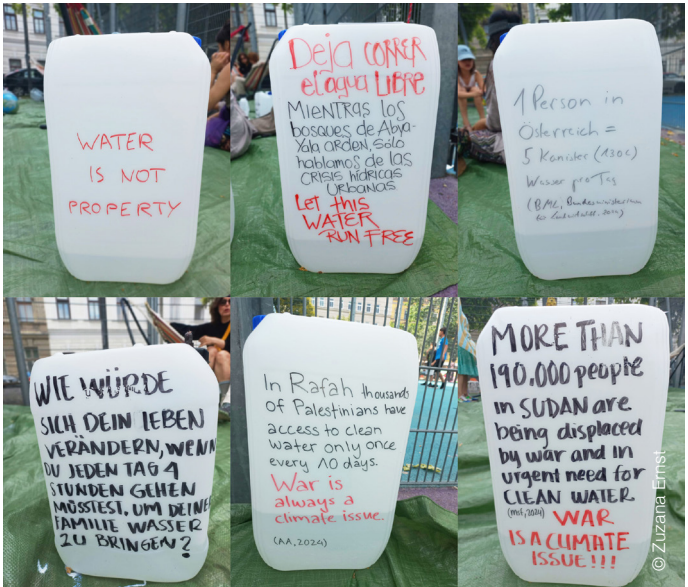 WATER
IS NOT
PROPERTY
Deja CORRER
el agua LIBRE
MIENTRAS los
bosques de Abya-
Yala ARDEN, SÓLO
hablamos de las
CRISIS HÍDRICAS
URBANAS
Let this
WATER
RUN FREE
1 Person in
Österreich =
5 Kanister (130l)
Wasser pro Tag
(BML,
2024)
WIE WÜRDE
SICH DEIN LEBEN
VERÄNDERN, WENN
DU JEDEN TAG 4
STUNDEN GEHEN
MÜSSTEST, UM DEINER
FAMILIE WASSER
ZU BRINGEN?
In Rafah thousands
of Palestinians have
access to clean
water only once
every 10 days.
War is
always a
climate issue.
(AA, 2024)
MORE THAN
190.000 people
in SUDAN are
being displaced
by war and in
urgent need for
CLEAN WATER
(msf, 2024) WAR
IS A CLIMATE
ISSUE!!!
© Zuzana Ernst